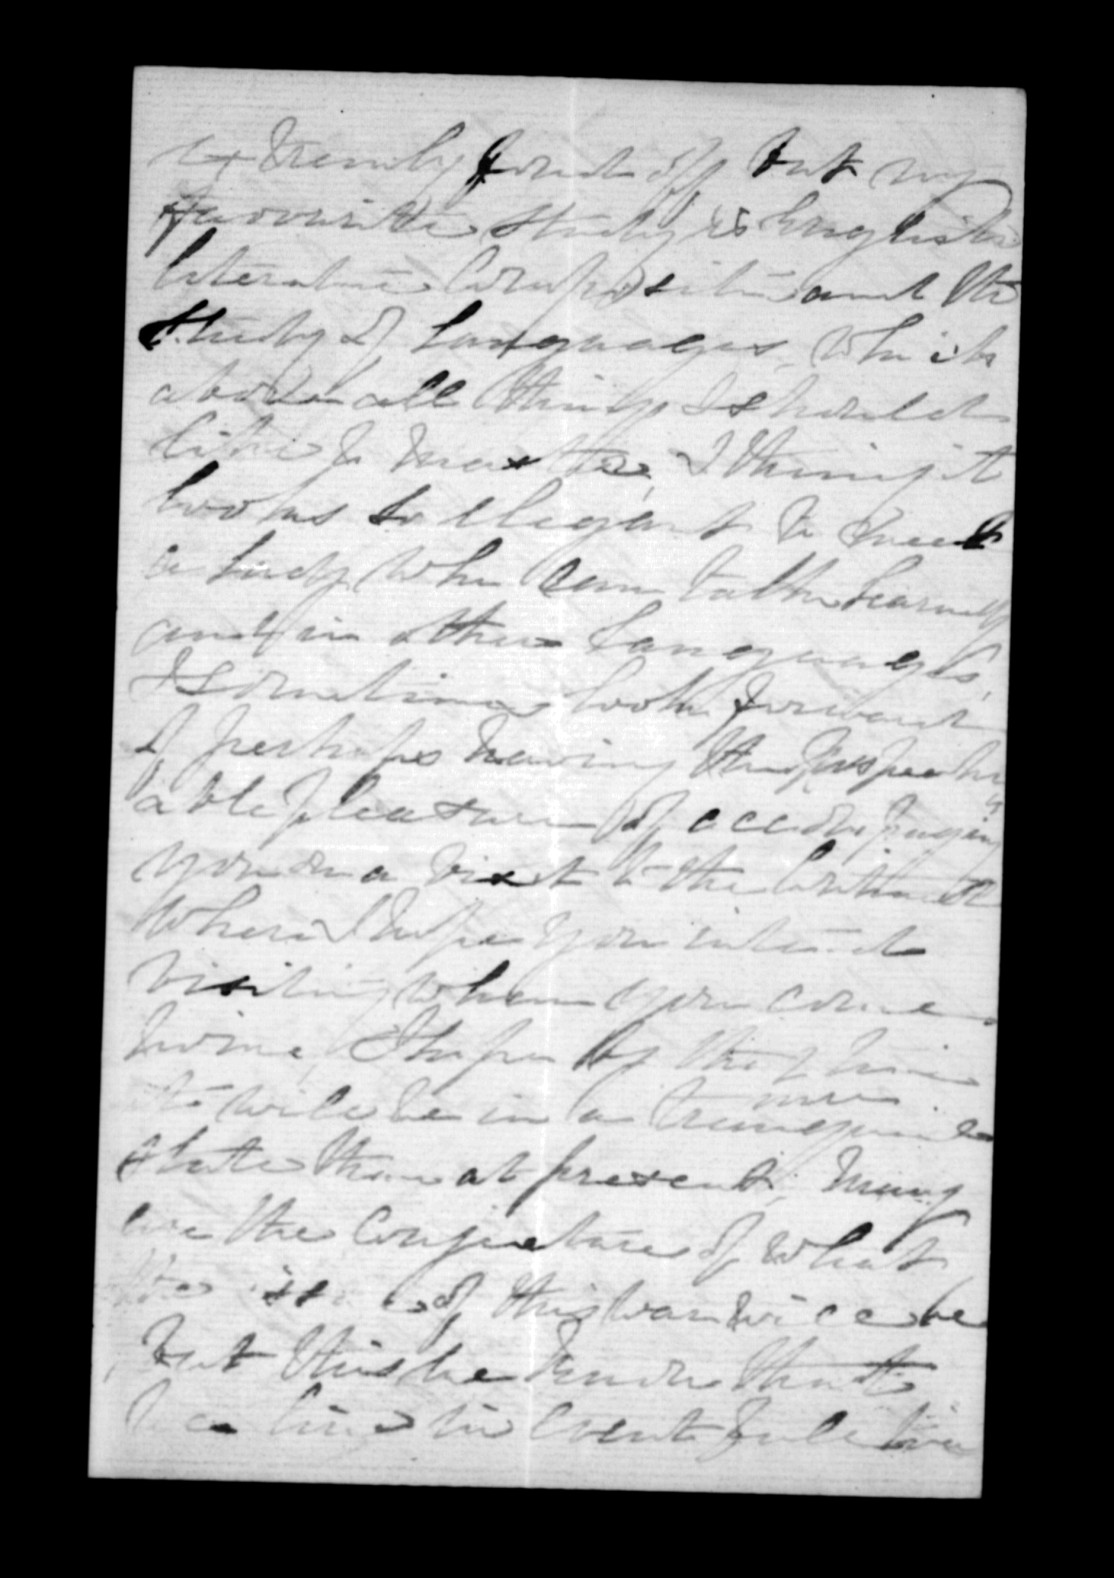 extremly fond off but my
favourite study is English
literature Composition and the
study of Languages, which
above all things I should
like to master, I thing it
looks so elegant to meet
a Lady who can talk learnedly
and in other Languages,
I sometimes look forward
of perhaps having the
able pleasure of accompanying
you on a visit to the Continent
where I hope you intend
visiting when you come
home, I hope by the time
it will be in a more tranquil
state than at present, Many
are the Conjectures of what
the issue of this war will be
but this we know that
we live in eventful